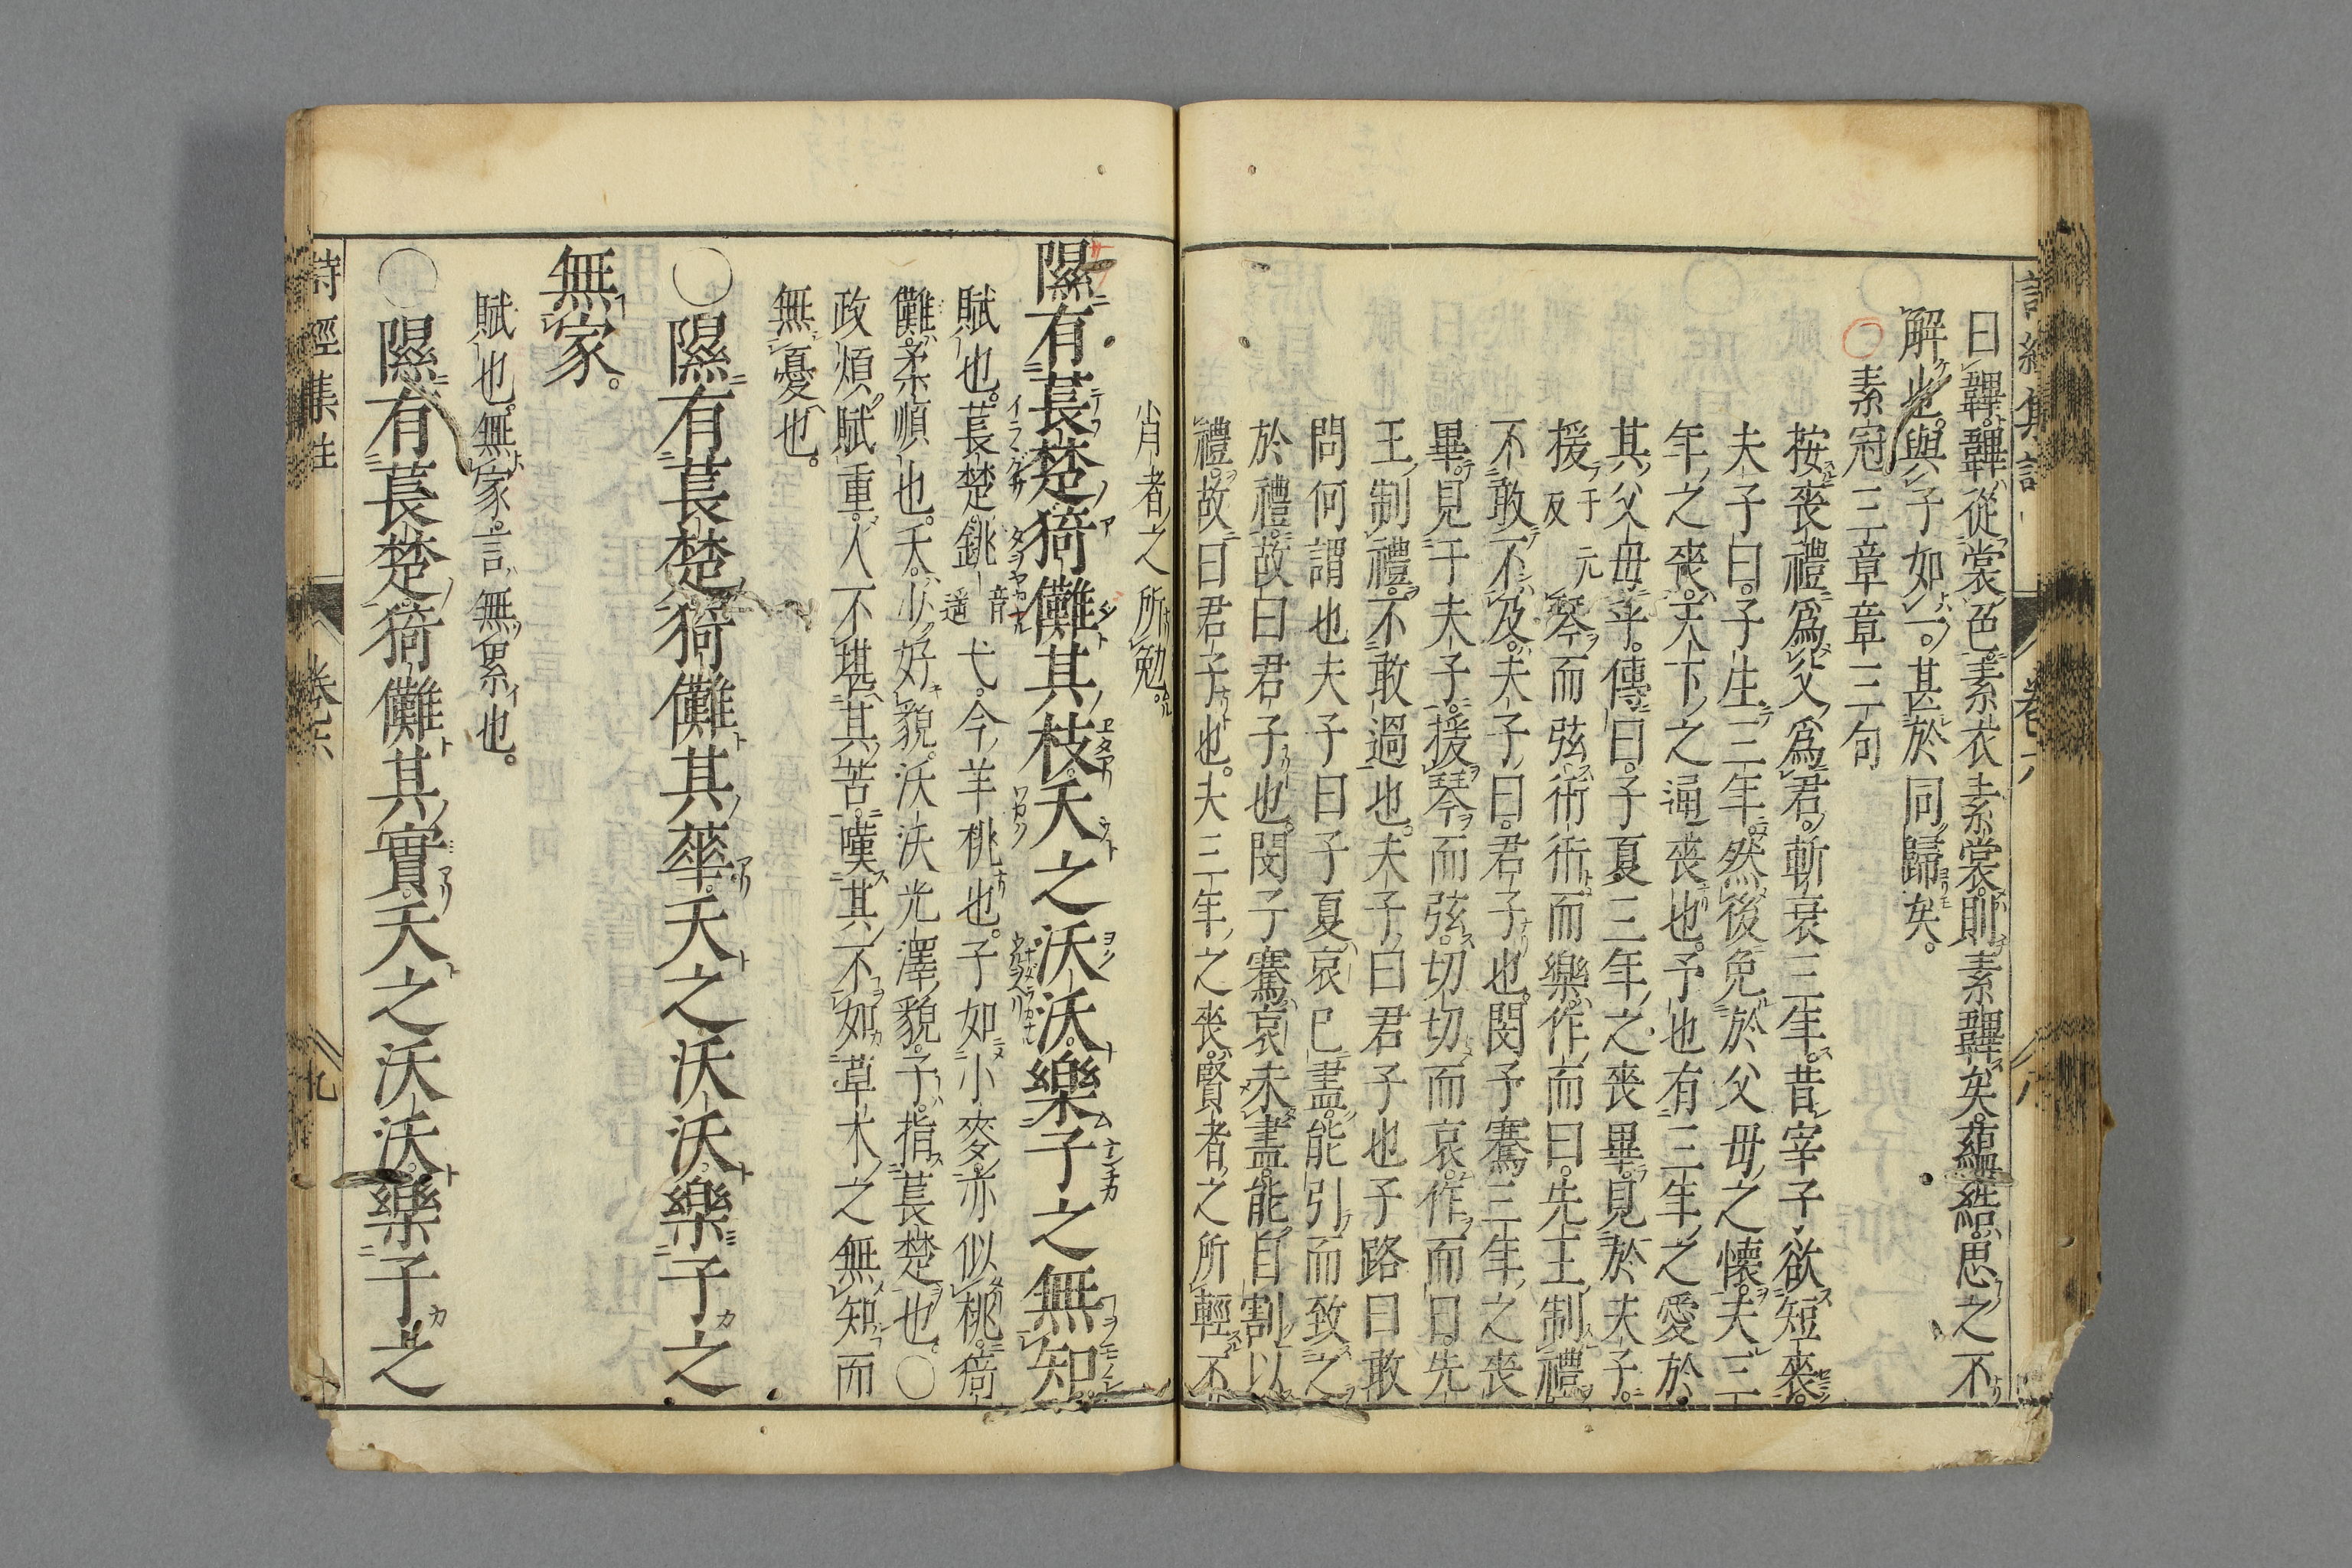 曰韠韠從裳色素衣素裳則素韠矣蘊結思之不
解也與子如一甚於同歸矣
素冠三章章三句
按喪禮爲父爲君斬衰三年昔宰予欲短喪
夫子曰子生三年然後免於父母之懷夫三
年之喪天下之通喪也予也有三年之愛於
其父母乎傳曰子夏三年之喪畢見於夫子
援于元反琴而弦衎衎而樂作而曰先王制禮
不敢不及夫子曰君子也閔子騫三年之喪
畢見于夫子援琴而弦切切而哀作而曰先
王制禮不敢過也夫子曰君子也子路曰敢
問何謂也夫子曰子夏哀已盡能引而致之
於禮故曰君子也閔子騫哀未盡能自割以
禮故曰君子也夫三年之喪賢者之所輕不
肖者之所勉
隰有萇楚猗儺其枝夭之沃沃樂子之無知
賦也萇楚銚音遥弋今羊桃也子如小麥亦似桃猗
儺柔順也夭少好貌沃沃光澤貌子指萇楚也〇
政煩賦重人不堪其苦嘆其不如草木之無知而
無憂也
〇隰有萇楚猗儺其華夭之沃沃樂子之
無家
賦也無家言無累也
〇隰有萇楚猗儺其實夭之沃沃樂子之
詩經集註 卷三 九